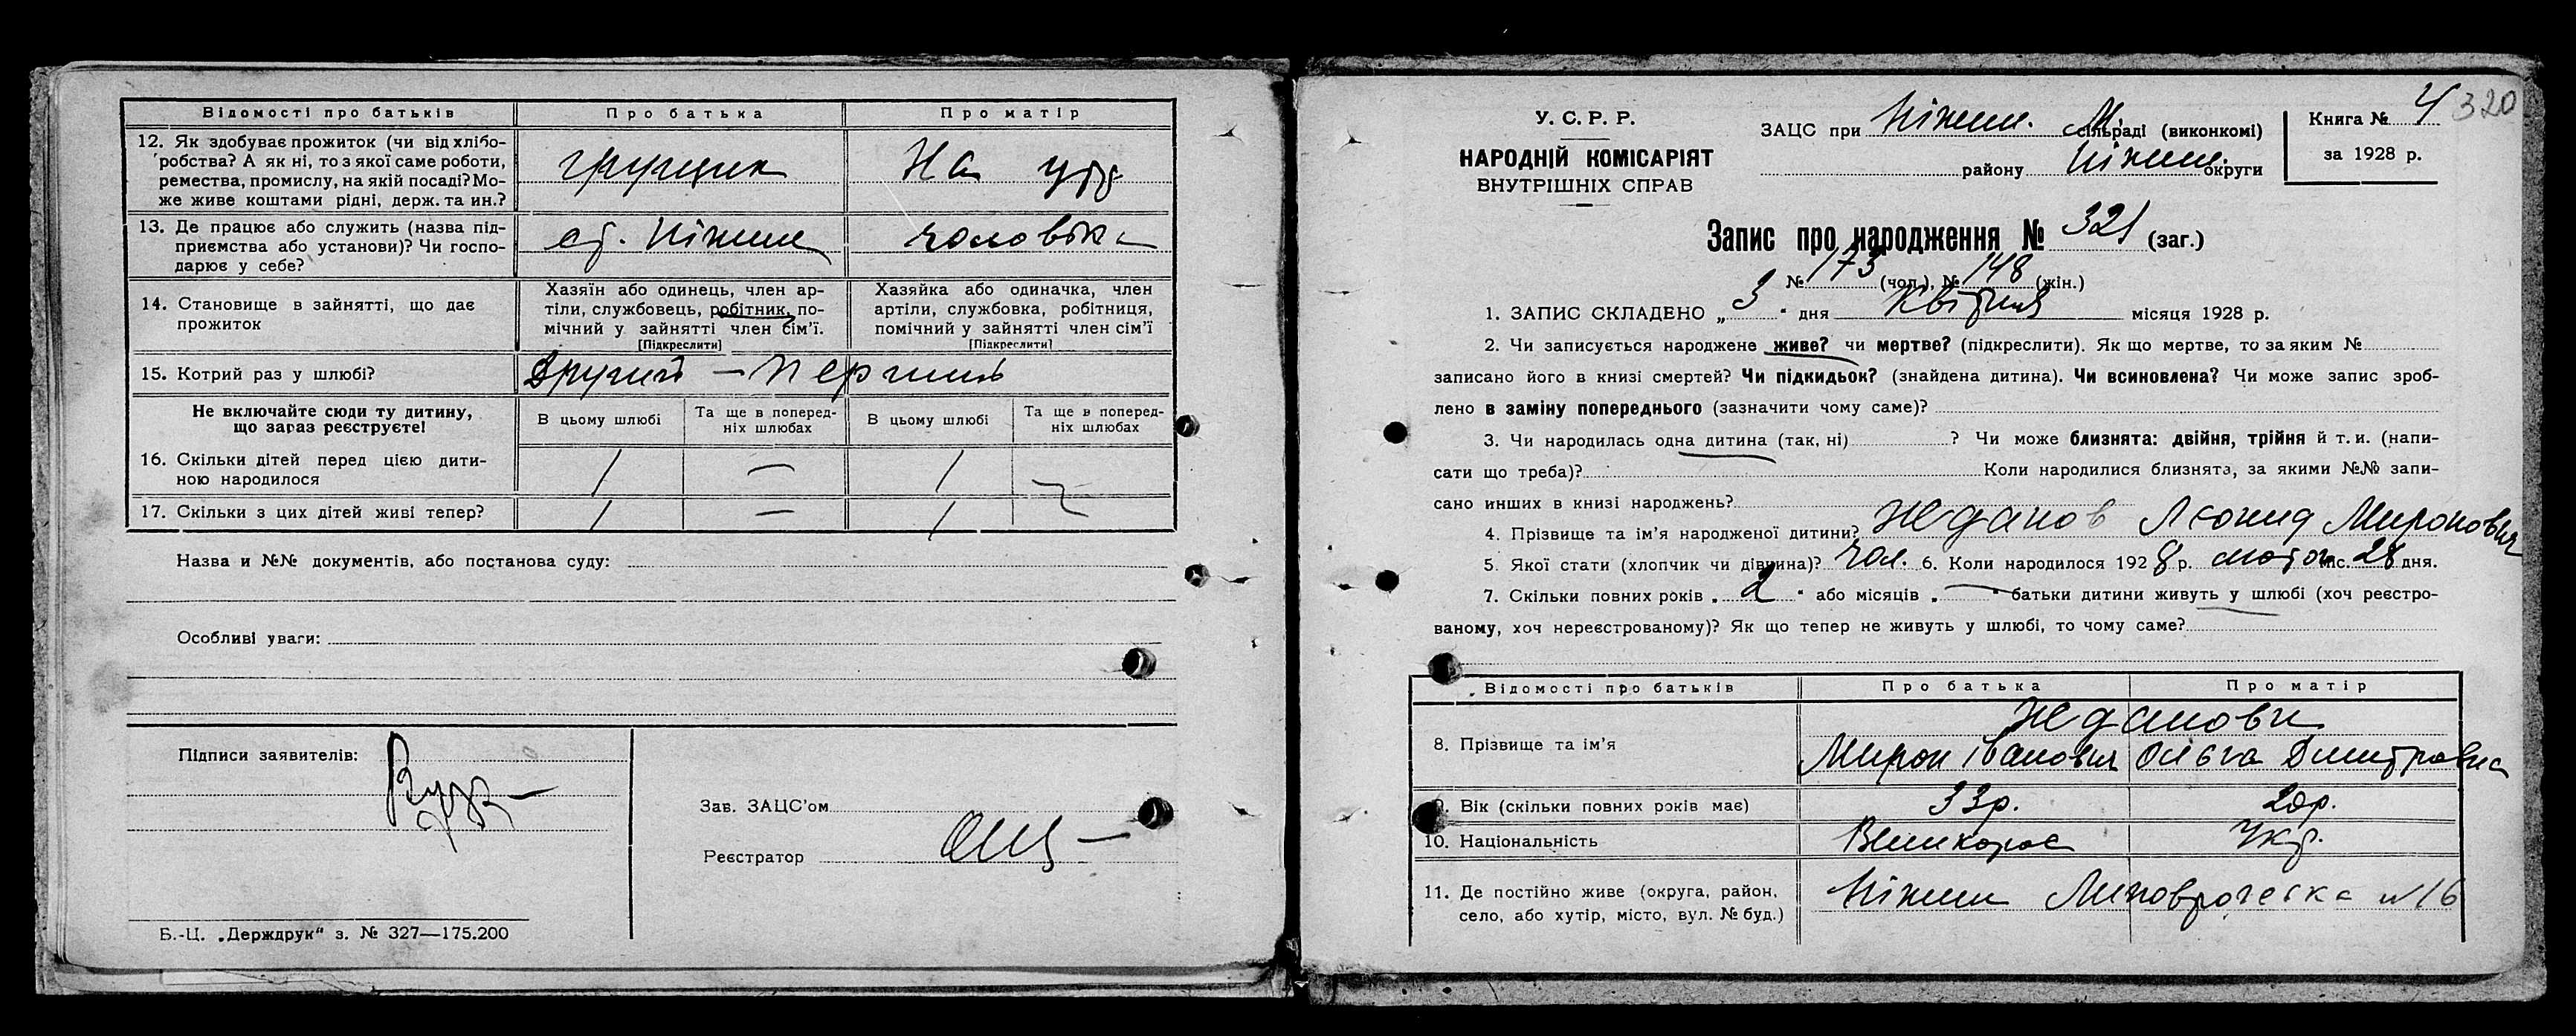 Відомості про батьків Про батька Про матір
12. Як здобуває прожиток (чи від хлібо-
робства? А як ні, то з якої саме роботи,
ремества, промислу, на якій посаді? Мо-
же живе коштами рідні, держ. та ин.?
грущик На утр
13. Де працює або служить (назва під-
приємства або установи)? Чи госпо-
дарює у себе?
ст. Ніжин чоловіка
14. Становище в зайнятті, що дає
прожиток
Хазяїн або одинець, член ар-
тіли, службовець, робітник, по-
мічний у зайнятті член сім'ї.
[Підкреслити]
Хазяйка або одиначка, член
артіли, службовка, робітниця,
помічний у зайнятті член сім'ї
[Підкреслити]
15. Котрий раз у шлюбі?
Другий — Перший
Не включайте сюди ту дитину,
що зараз реєструєте!
В цьому шлюбі
Та ще в поперед-
ніх шлюбах
В цьому шлюбі
Та ще в поперед-
ніх шлюбах
16. Скільки дітей перед цією дити-
ною народилося
1 — 1
17. Скільки з цих дітей живі тепер?
1 — 1
Назва и №№ документів, або постанова суду:
Особливі уваги:
Підписи заявителів:
Зав. ЗАЦС'ом
Реєстратор
Б.-Ц. „Держдрук" з. № 327—175.200
У. С. Р. Р.
НАРОДНІЙ КОМІСАРІЯТ
ВНУТРІШНІХ СПРАВ
ЗАЦС при Ніжин. М. сільраді (виконкомі)
району Ніжин. округи
Книга № 4
за 1928 р.
320
Запис про народження № 321 (заг.)
№ 173 (чол.), № 148 (жін.)
1. ЗАПИС СКЛАДЕНО „3" дня Квітня місяця 1928 р.
2. Чи записується народжене живе? чи мертве? (підкреслити). Як що мертве, то за яким №
записано його в книзі смертей? Чи підкидьок? (знайдена дитина). Чи всиновлена? Чи може запис зроб-
лено в заміну попереднього (зазначити чому саме)?
3. Чи народилась одна дитина (так, ні) ? Чи може близнята: двійня, трійня й т. и. (напи-
сати що треба)? Коли народилися близнята, за якими №№ запи-
сано инших в книзі народжень?
4. Прізвище та ім'я народженої дитини? Жданов Леонид Миронович
5. Якої статі (хлопчик чи дівчина)? чол. 6. Коли народилося 1928 р. лютого міс. 28 дня.
7. Скільки повних років „2" або місяців „—" батьки дитини живуть у шлюбі (хоч реєстро-
ваному, хоч нереєстрованому)? Як що тепер не живуть у шлюбі, то чому саме?
Відомості про батьків Про батька Про матір
8. Прізвище та ім'я
Жданови
Мирон Іванович Ольга Дмитровна
9. Вік (скільки повних років має) 33р. 20р.
10. Національність Великорос Укр.
11. Де постійно живе (округа, район,
село, або хутір, місто, вул. № буд.)
Ніжин №16